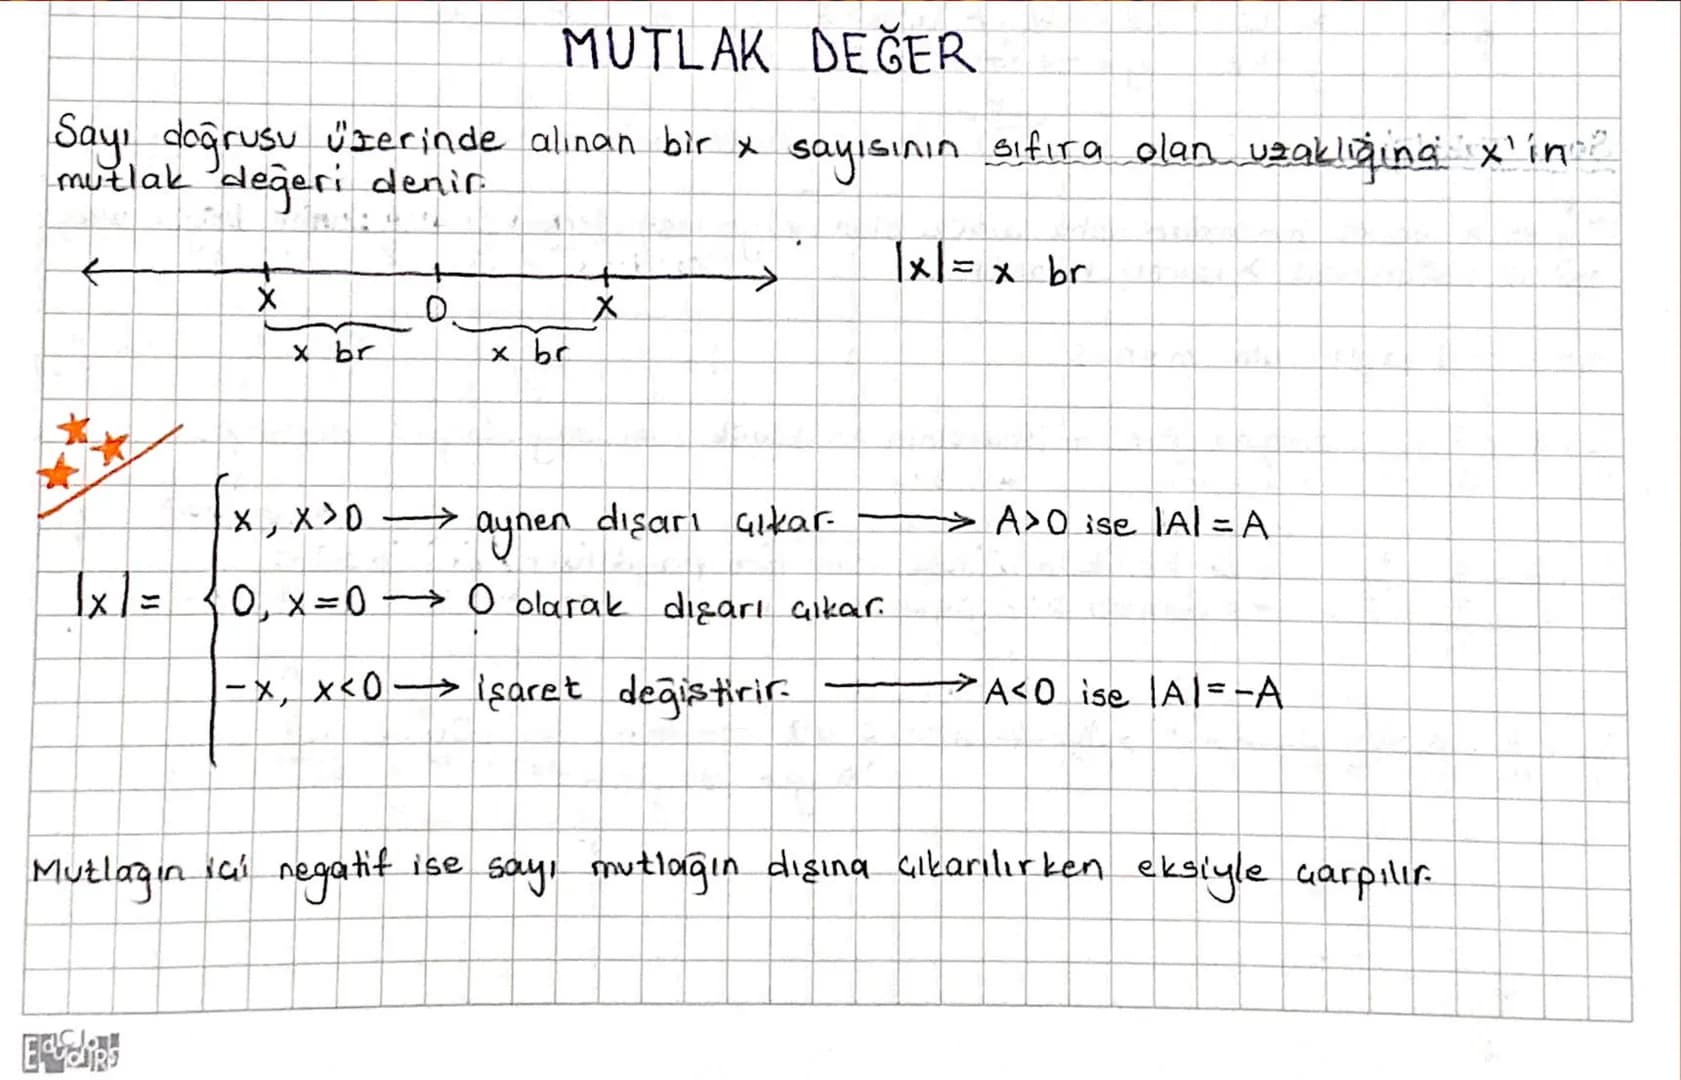 MUTLAK DEĞER
Sayı doğrusu üzerinde alınan bir x sayısının sıfıra olan uzaklığına x'in
mutlak değeri denir.
|x| = x br
x 0 x
x br x br
x, x>0 → aynen dışarı çıkar. → A>0 ise |A| = A
|x| = 0, x=0 → 0 olarak dışarı çıkar.
-x, x<0 → işaret değiştirir. → A<0 ise |A| = -A
Mutlağın içi negatif ise sayı mutlağın dışına çıkarılırken eksiyle çarpılır.